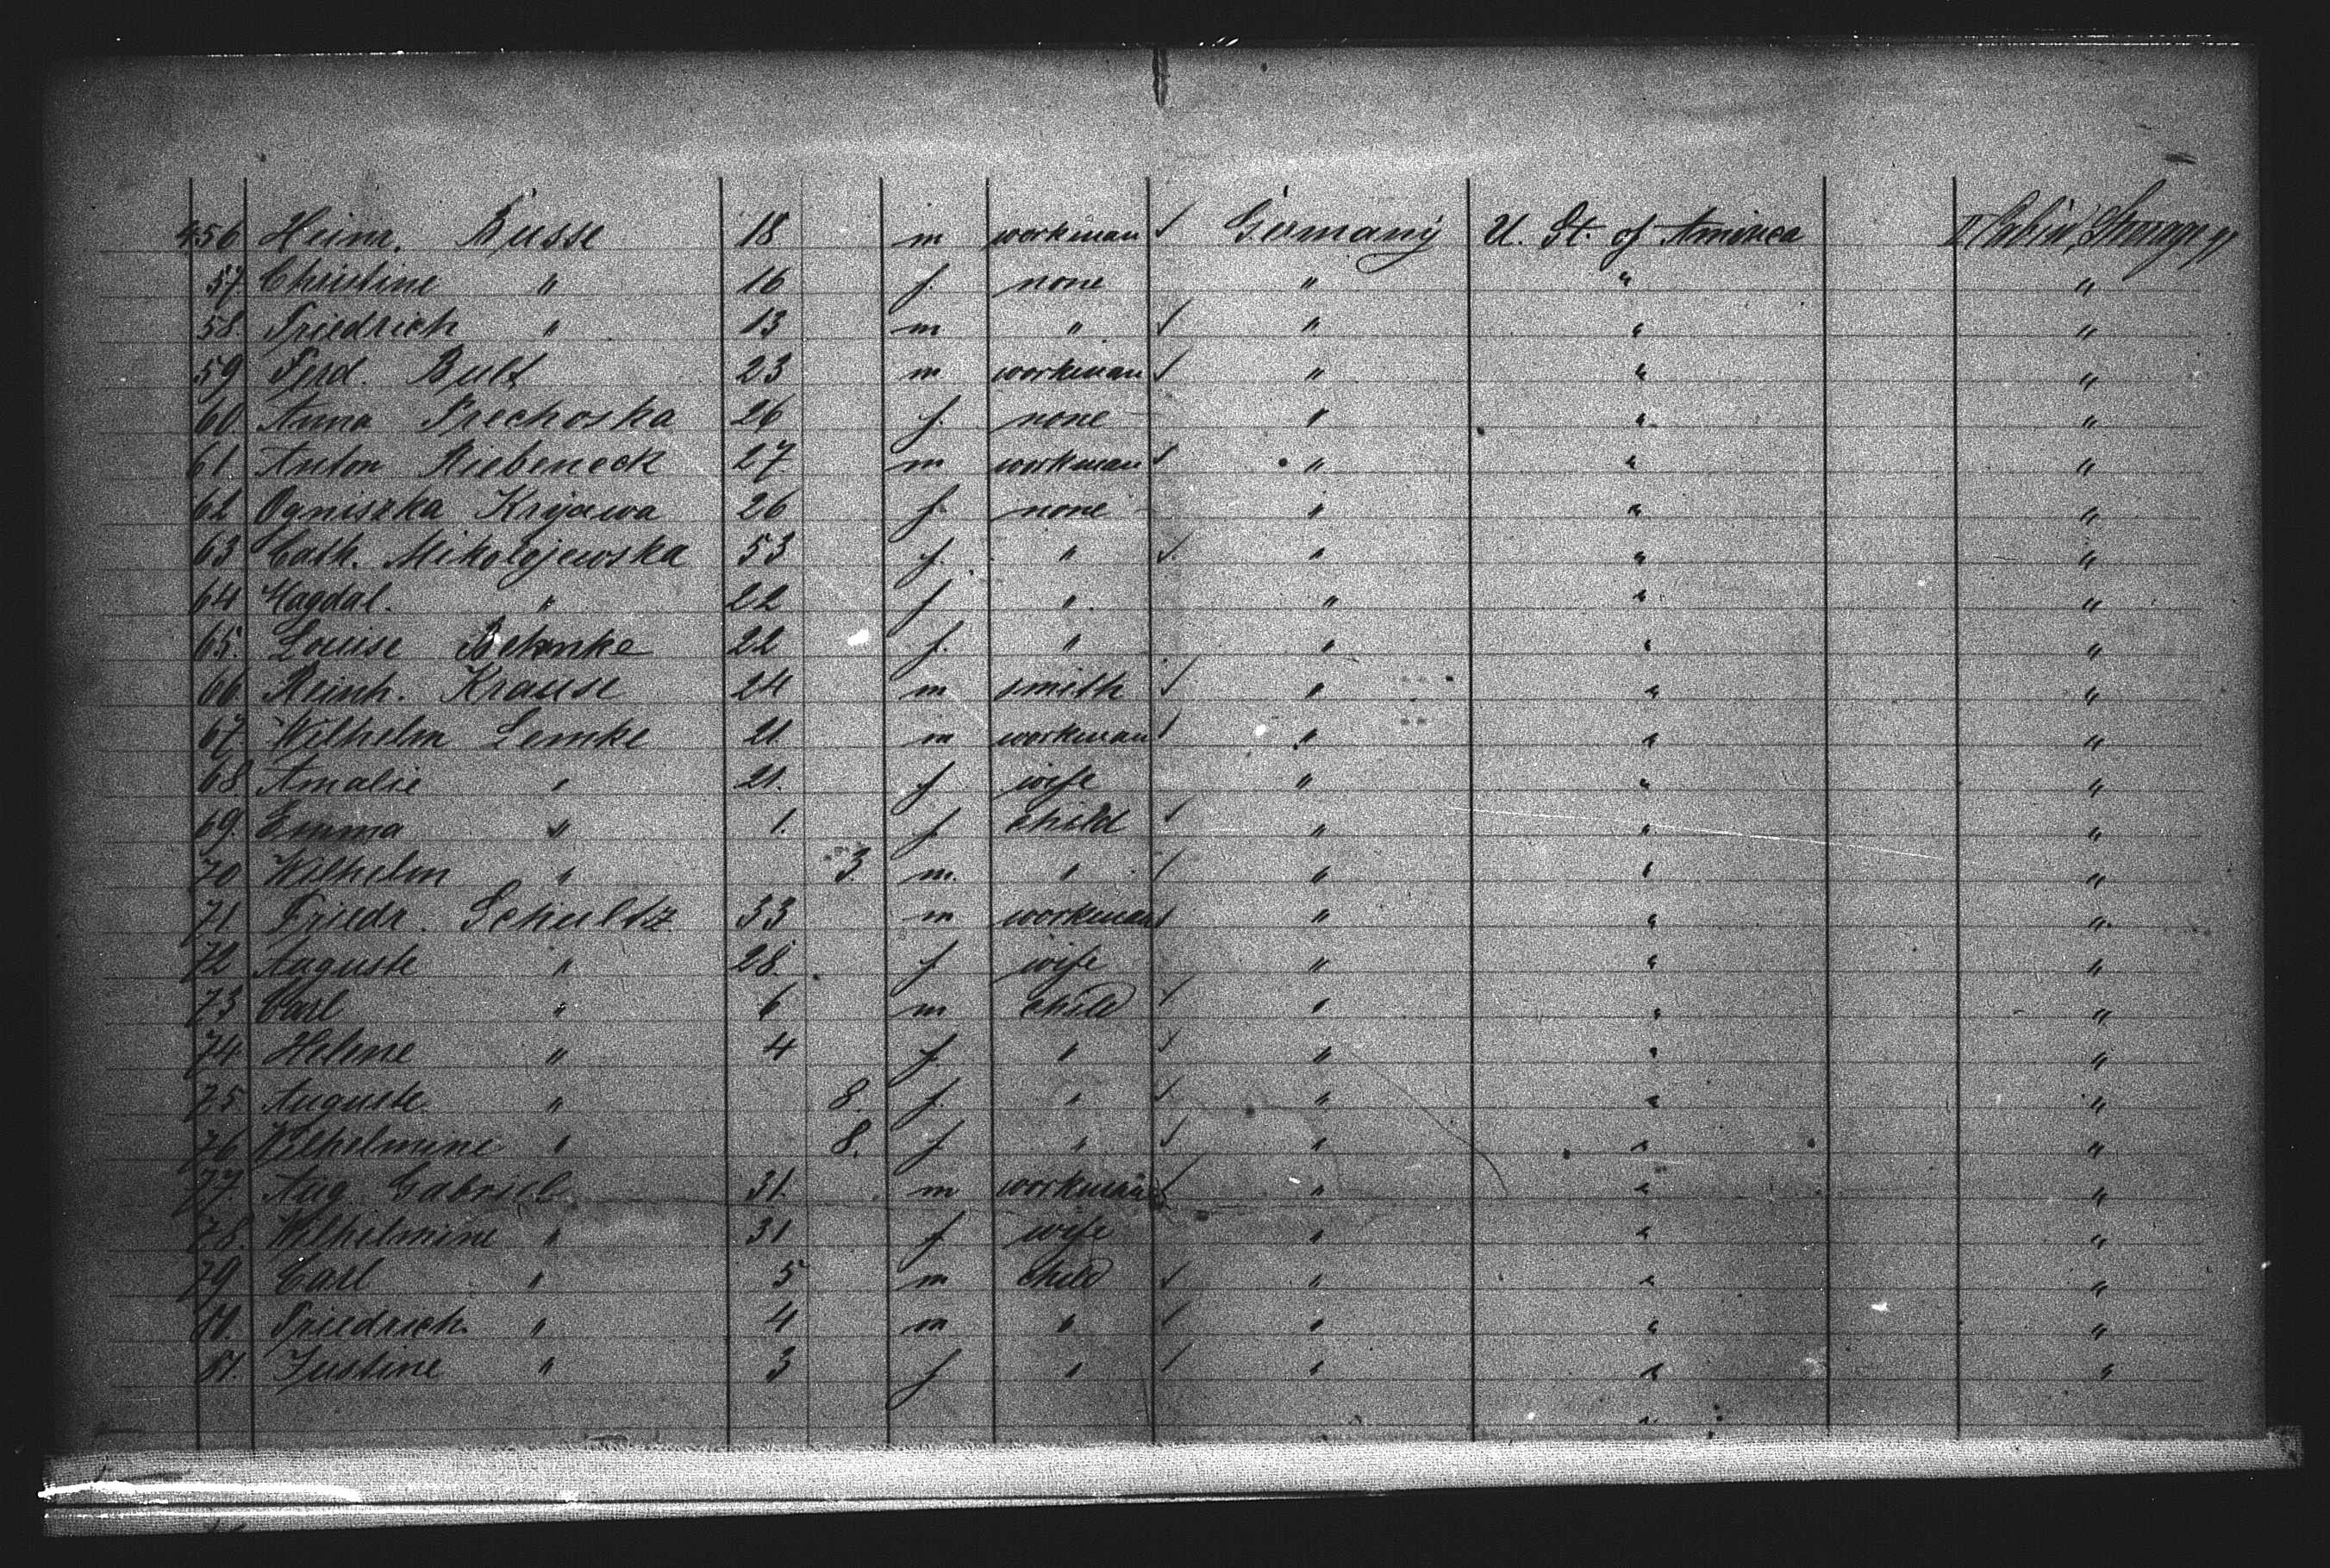 456 Heinr. Busse 18 m workman Germany U. St. of America II Cabin, Steerage
57 Christine " 16 f. none " " "
58 Friedrich " 13 m " " " "
59 Ferd. Bult 23 m workman " " "
60 Anna 26 f. none " " "
61 Anton Riebeneck 27 m workman " " "
62 Ogniszka Kryawa 26 f. none " " "
63 Cath. Mikolojewska 53 f. " " " "
64 Magdal. " 22 f " " " "
65. Louise 22 f. " " " "
66 Reinh. Krause 24 m smith " " "
67. Wilhelm Lemke 21 m workman " " "
68 Amalie " 21. f wife " " "
69. Emma " 1. f child " " "
70 Wilhelm " 3 m. " " " "
71 Friedr. Schultz 33 m workman " " "
72 Auguste " 28. f wife " " "
73 Carl " 6 m child " " "
74 Helene " 4 f. " " " "
75 Auguste " 8. f. " " " "
76 Wilhelmine " 8. f " " " "
77. Aug. Gabriel 31. m workman " " "
78. Wilhelmine " 31 f wife " " "
79 Carl " 5 m child " " "
80. Friedrich " 4 m " " " "
81. Justine " 3 f " " " "